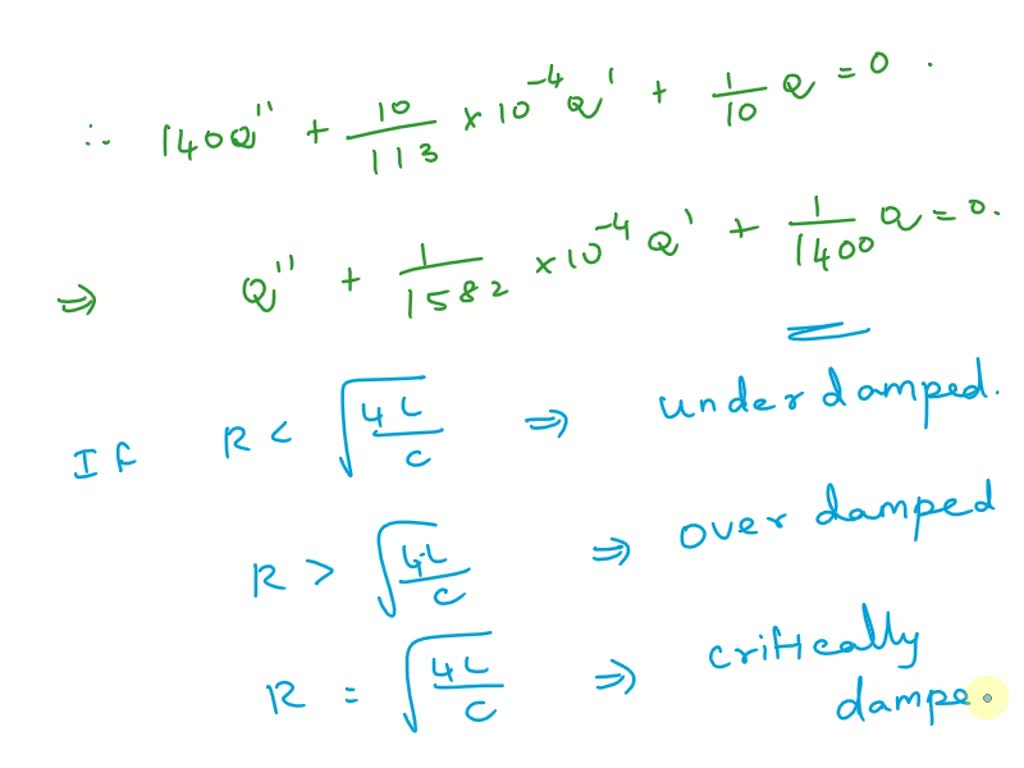 ∴ 140Q'' + 10/113 × 10^-4 Q' + 1/10 Q = 0 .
⇒ Q'' + 1/1582 × 10^-4 Q' + 1/1400 Q = 0.
If R < √(4L/C) ⇒ under damped.
R > √(4L/C) ⇒ over damped
R = √(4L/C) ⇒ critically
dampe